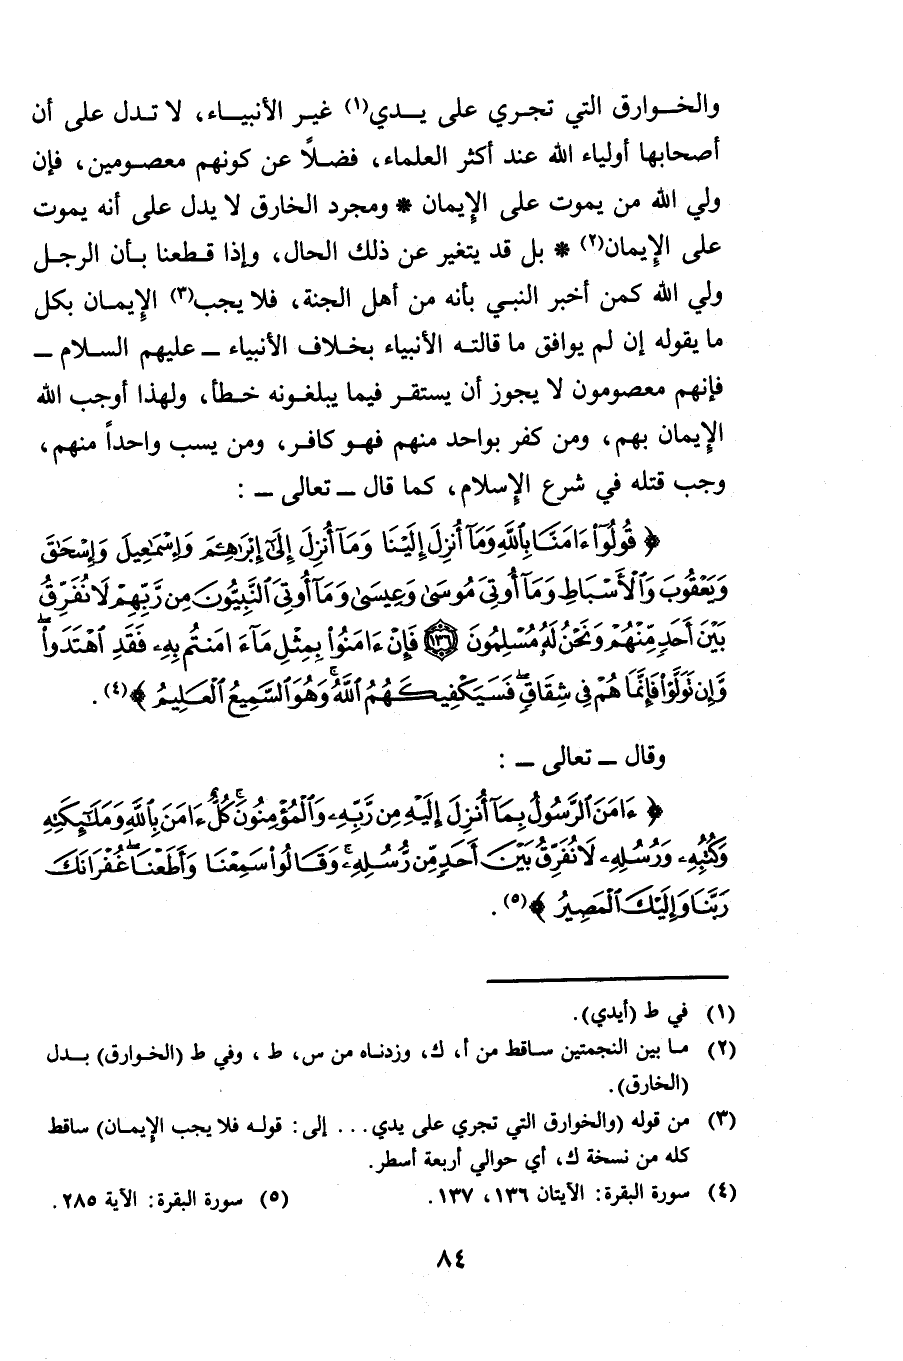 والخـوارق التي تجـري على يـدي(١) غيـر الأنبيـاء، لا تـدل على أن
أصحابها أولياء الله عند أكثر العلماء، فضلًا عن كونهم معصـومين، فإن
ولي الله من يموت على الإيمان * ومجرد الخارق لا يدل على أنه يموت
على الإيمان(٢) * بل قد يتغير عن ذلك الحال، وإذا قـطعنا بـأن الرجـل
ولي الله كمن أخبر النبـي بأنه من أهل الجنة، فلا يجب(٣) الإيمـان بكل
ما يقوله إن لم يوافق ما قالتـه الأنبياء بخـلاف الأنبياء ــ عليهم السـلام ــ
فإنهم معصومون لا يجوز أن يستقـر فيما يبلغـونه خـطأ، ولهذا أوجب الله
الإيمان بهم، ومن كفر بواحد منهم فهـو كافـر، ومن يسب واحداً منهم،
وجب قتله في شرع الإسلام، كما قال ــ تعالى ــ :
﴿ قُولُوٓا۟ ءَامَنَّا بِٱللَّهِ وَمَآ أُنزِلَ إِلَيْنَا وَمَآ أُنزِلَ إِلَىٰٓ إِبْرَٰهِـۧمَ وَإِسْمَٰعِيلَ وَإِسْحَٰقَ
وَيَعْقُوبَ وَٱلْأَسْبَاطِ وَمَآ أُوتِىَ مُوسَىٰ وَعِيسَىٰ وَمَآ أُوتِىَ ٱلنَّبِيُّونَ مِن رَّبِّهِمْ لَا نُفَرِّقُ
بَيْنَ أَحَدٍ مِّنْهُمْ وَنَحْنُ لَهُۥ مُسْلِمُونَ ١٣٦ فَإِنْ ءَامَنُوا۟ بِمِثْلِ مَآ ءَامَنتُم بِهِۦ فَقَدِ ٱهْتَدَوا۟ۖ
وَّإِن تَوَلَّوْا۟ فَإِنَّمَا هُمْ فِى شِقَاقٍۖ فَسَيَكْفِيكَهُمُ ٱللَّهُۚ وَهُوَ ٱلسَّمِيعُ ٱلْعَلِيمُ ﴾(٤).
وقال ــ تعالى ــ :
﴿ ءَامَنَ ٱلرَّسُولُ بِمَآ أُنزِلَ إِلَيْهِ مِن رَّبِّهِۦ وَٱلْمُؤْمِنُونَۚ كُلٌّ ءَامَنَ بِٱللَّهِ وَمَلَٰٓئِكَتِهِۦ
وَكُتُبِهِۦ وَرُسُلِهِۦ لَا نُفَرِّقُ بَيْنَ أَحَدٍ مِّن رُّسُلِهِۦۚ وَقَالُوا۟ سَمِعْنَا وَأَطَعْنَاۖ غُفْرَانَكَ
رَبَّنَا وَإِلَيْكَ ٱلْمَصِيرُ ﴾(٥).
(١) في ط (أيدي).
(٢) مـا بين النجمتين سـاقط من أ، ك، وزدنـاه من س، ط ، وفي ط (الخـوارق) بـدل
(الخارق).
(٣) من قوله (والخوارق التي تجري على يدي... إلى: قولـه فلا يجب الإيمـان) ساقط
كله من نسخة ك، أي حوالي أربعة أسطر.
(٤) سورة البقرة: الآيتان ١٣٦، ١٣٧. (٥) سورة البقرة: الآية ٢٨٥.
٨٤